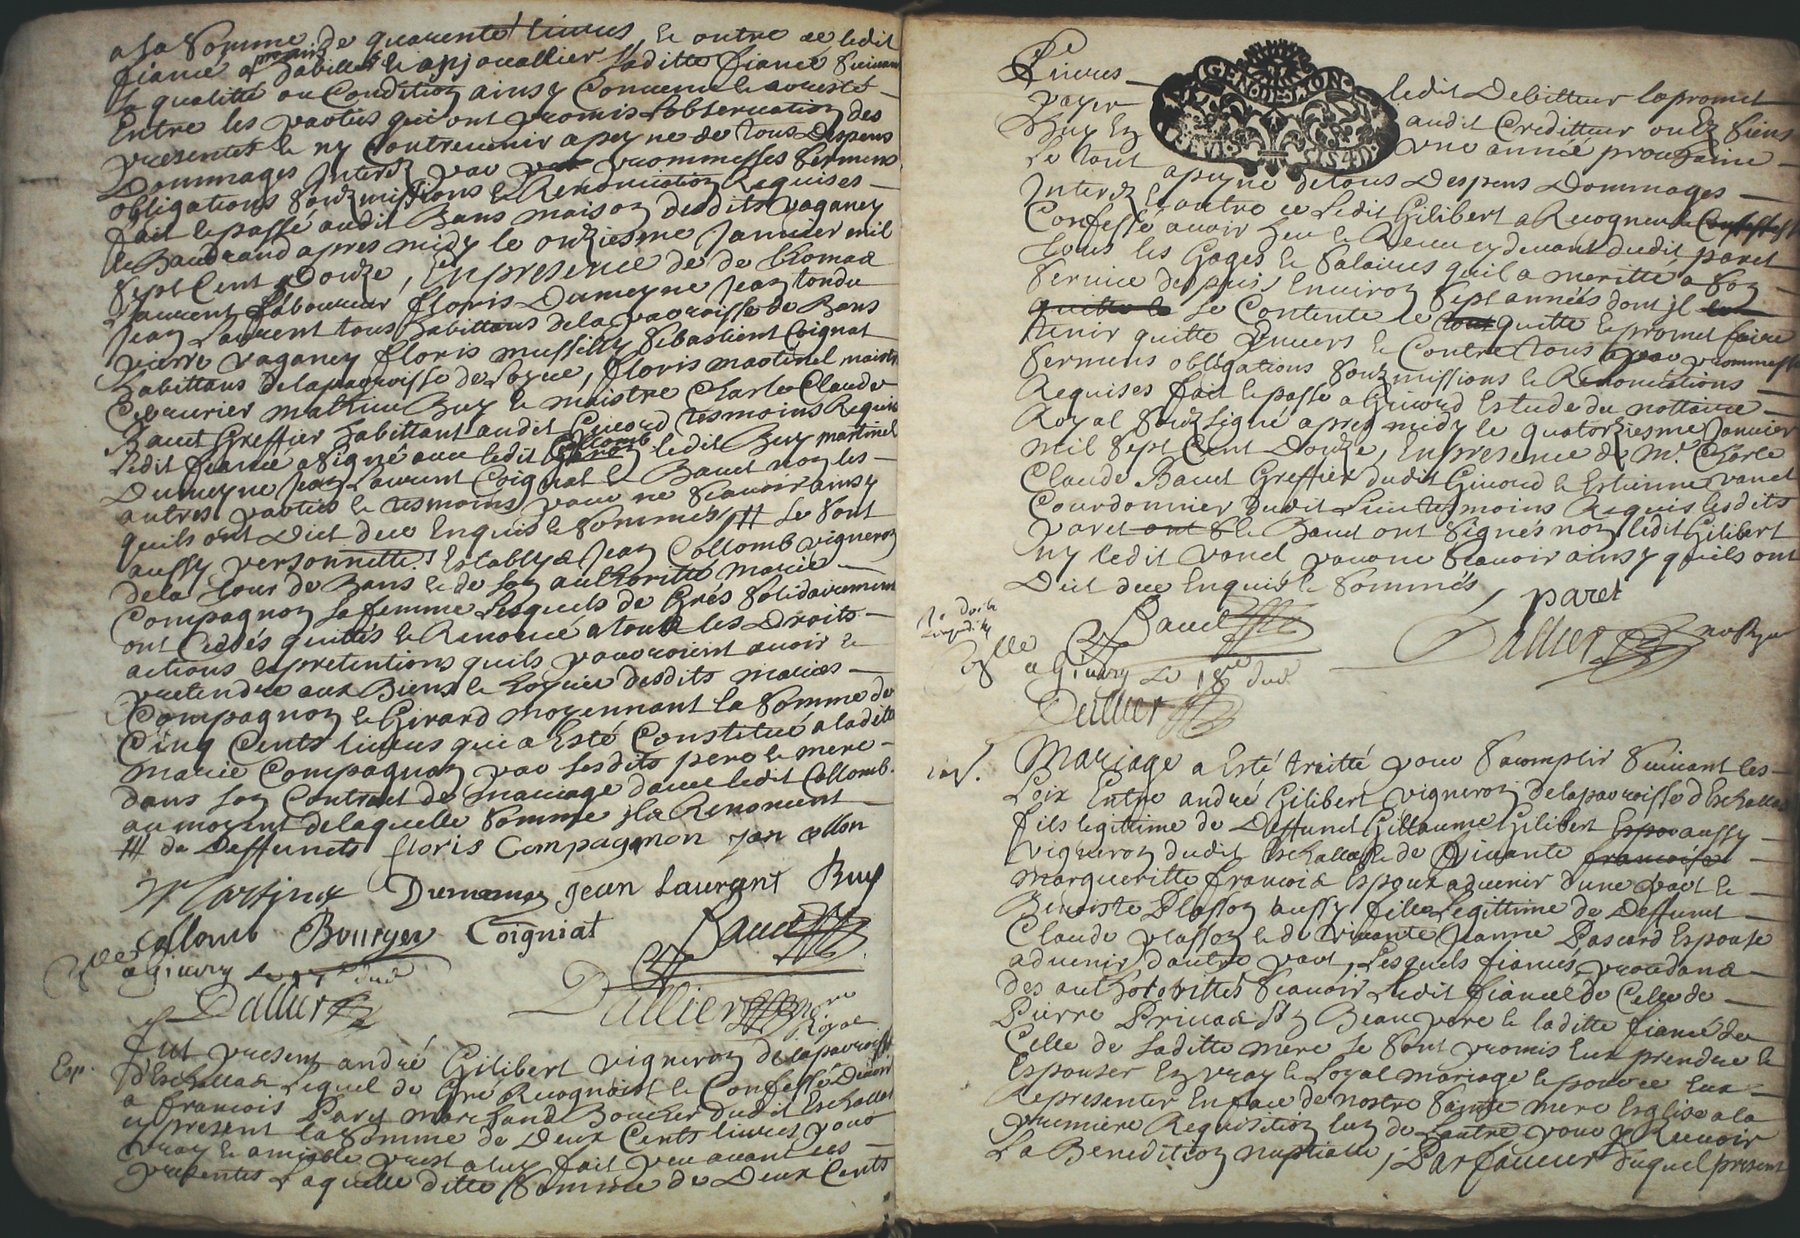 a la somme de quarente livres, et outre ce ledit
fiancé a promis d'habiller et anjouallier laditte fiancé suivant
sa qualitté ou Condition ainsy Convenu et aresté
Entre les parties qui ont promis l'observation des
presentes et ny Contrevenir a peyne de tous Despens
Dommages Interetz par promesses sermens
obligations soubzmissions et Renonciations Requises
fait et passé audit Bans maison desdits paganey
et Baudrand apres midy le onziesme Janvier mil
sept Cent Douze, En presence de de thomas
Laurent laboureur floris Dumeyne Jean tondu
Jean Laurent tous habittans de la parroisse de Bans
pierre paganey floris mussilly sebastient Coignat
habittans de la parroisse de , floris martinel maistre
Charle Claude
Baud Greffier habittant audit Givord tesmoins Requis
ledit fiancé a signé avec ledit Collomb ledit Buy martinel
Dumeyne Jean Laurent Coignat et Baud non les
autres parties et tesmoins pour ne scavoir ainsy
quils ont Dict de ce Enquis et sommés /// se sont
aussy personnelle.t Establys Jean Collomb vigneron
de la tour de Bans et de son authoritté marie
Compagnon sa femme Lesquels de Grés solidairement
ont Ceddés quittés et Renoncé a tous les Droits
actions et pretentions quils pourroient avoir et
pretendre aux Biens et hoyrie desdits mariés
Compagnon et Girard moyennant la somme de
Cinq Cents livres qui a Esté Constitué a laditte
marie Compagnon par sesdits pere et mere
dans son Contract de mariage d'avec ledit Collomb
au moyent de laquelle somme ils Renoncent
/// de Deffuncts floris Compagnon Jan ollon
Martinel Dumeyne Jean Laurant Buy
Collomb Bouryer Coigniat Baud
a Givory Le 17e dud
Dallier Dallier nre
Royal
Esp. fut present andré Gilibert vigneron de la parroisse
d'Eschallas Lequel de Gré Recognoist et Confesse Devoir
a francois Paret marchand Boucher dudit Eschallas
cy present la somme de Deux Cents livres pour
vray et amiable prest a luy fait peu avant ces
presentes Laquelle ditte somme de Deux Cents
Livres ledit Debitteur la promet
payer audit Creditteur ou Es siens
d'huy En une année prochaine
Le tout a peyne de tous Despens Dommages
Interetz et outre ce Ledit Gilibert a Recogneu et Confessé
Confessé avoir heu et Receu cy devant dudit paret
tous les Gages et salaires quil a meritté a son
service depuis Environ sept années dont il
quitte le se Contente le quitte et promet faire
tenir quitte Envers et Contre tous par promesses
sermens obligations soubzmissions et Renonciations
Requises fait et passé a Givord Estude du nottaire
Royal soubzsigné apres midy le quatorziesme Janvier
mil sept Cent Douze, En presence de Mr. Charle
Claude Baud Greffier dudit Givord et Estienne vanel
Courdonnier dudit Lieu tesmoins Requis lesdits
paret ont et Baud ont signés non ledit Gilibert
ny ledit vanel pour ne scavoir ainsy quils ont
Dict de ce Enquis et sommés
Baud paret
Dallier
a Givory Le 18e dud
Dallier
Mariage a Esté traitté pour s'acomplir suivant les
Loix Entre andré Gilibert vigneron de la parroisse d'Eschallas
fils legittime de Deffunct Gillaume Gilibert aussy
vigneron dudit Eschallas et de vivante francoise
margueritte francois Espoux advenir d'une part et
Benoiste Plasson aussy fille Legittime de Deffunct
Claude plasson et de vivante Jeanne Pascard Espouse
advenir d'autre part, Lesquels fiancés procedans
des authorittés scavoir Ledit fiancé de Celle de
Pierre Privas son Beau pere et laditte fiancé de
Celle de saditte mere se sont promis Eux prendre et
Espouser En vray et Loyal mariage et pource Eux
Representer En face de nostre sainte mere Esglise a la
premiere Requisition lun de lautre pour y Recevoir
La Benediction nuptialle, Par faveur duquel present